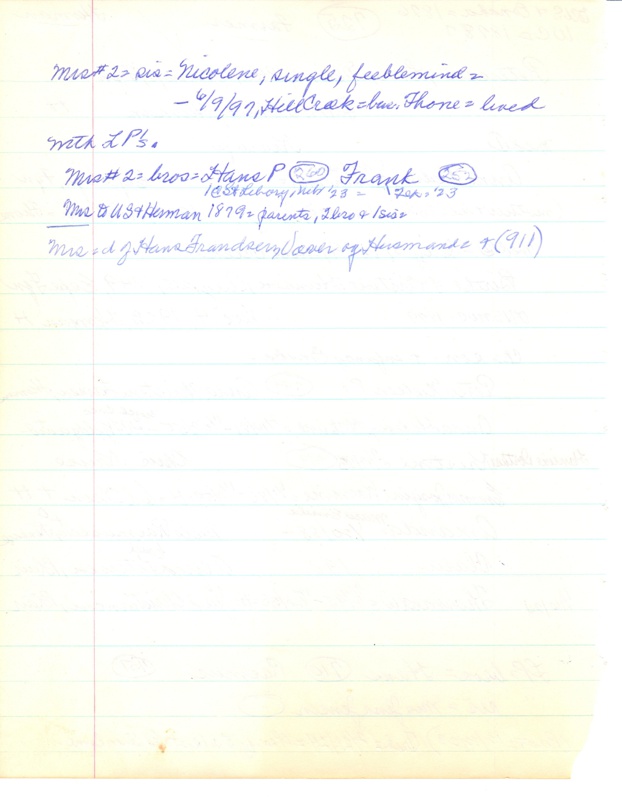 Mrs # 2 = sis = Nicolene, single, feeblemind =
- 6/9/97, Hill Creek = bus. Thone = lived
with L P's.
Mrs # 2 = bros = Hans P 260 Frank 252
Nebr '23 = Feb = '23
Mrs to US & Herman 1879 = parents, 2 bro & 1 sis =
Mrs = d of Hans Frandsen, Vaver og Husmand = & (911)